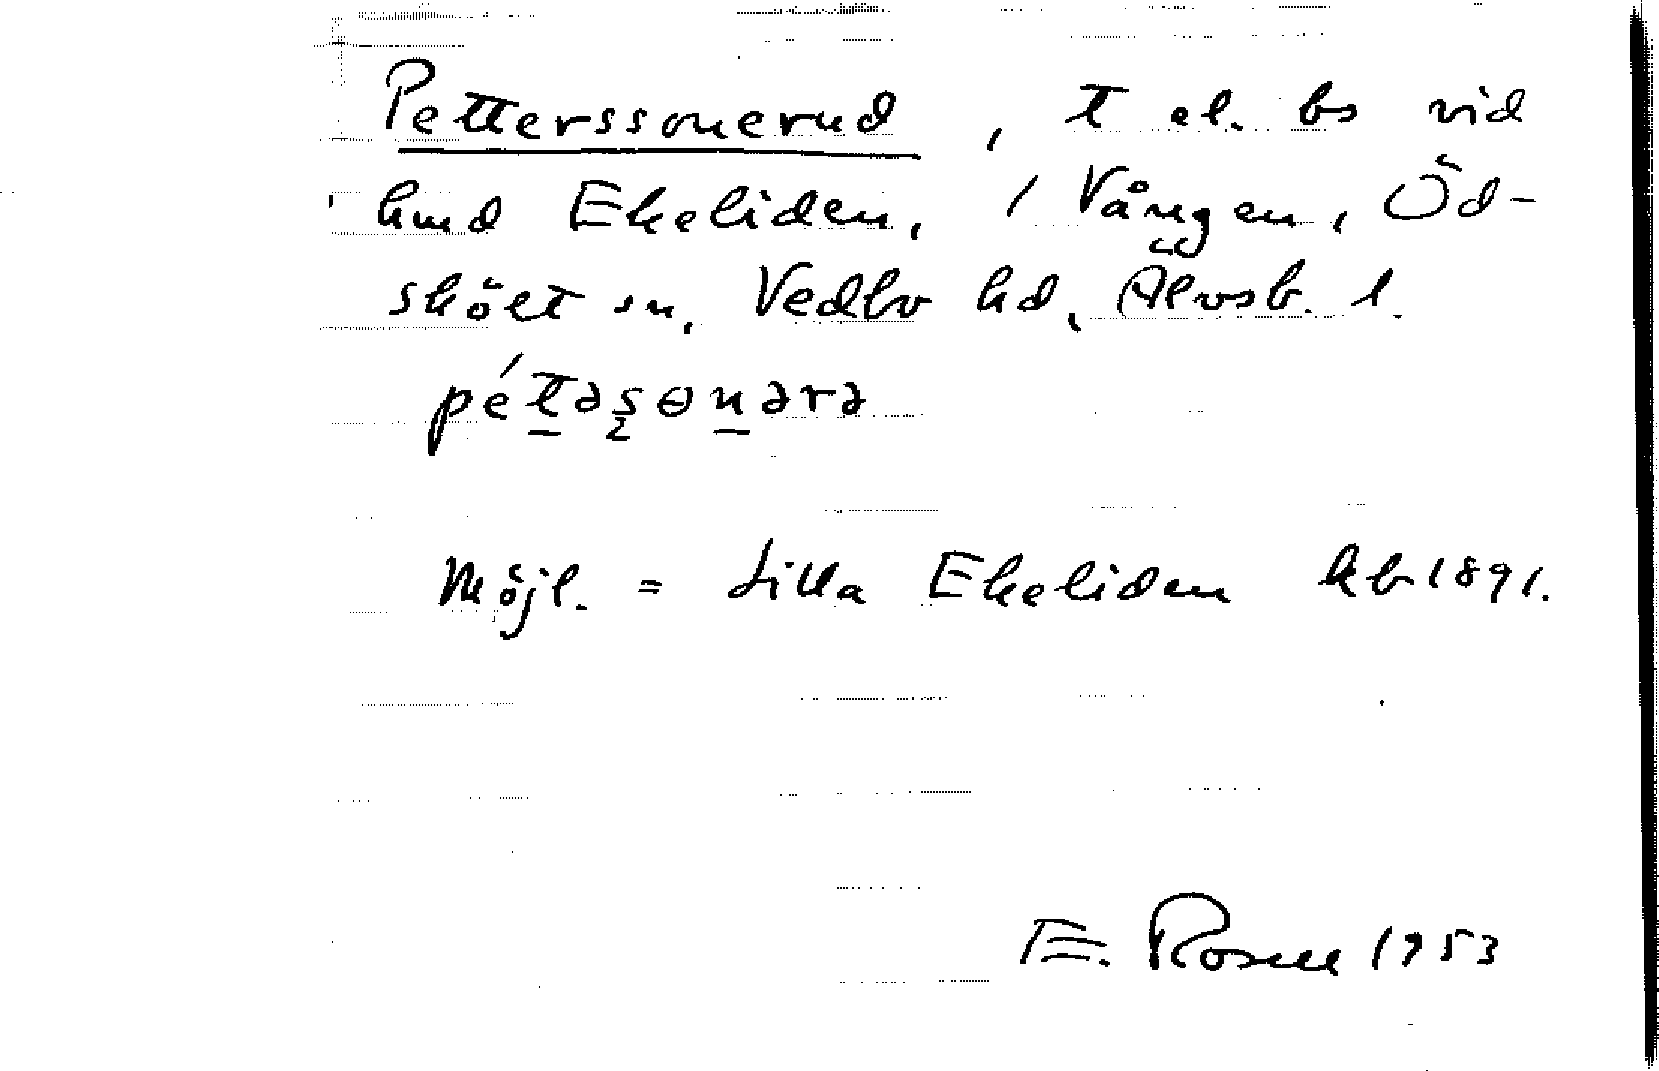 Petterssonerud, t el. bs vid
hmd Ekeliden, / Vången, Öd-
skölt sn, Vedbo hd, Älvsb. l.
péttəsɵnərə
Möjl. = Lilla Ekeliden kb 1891.
E. Rosell 1953